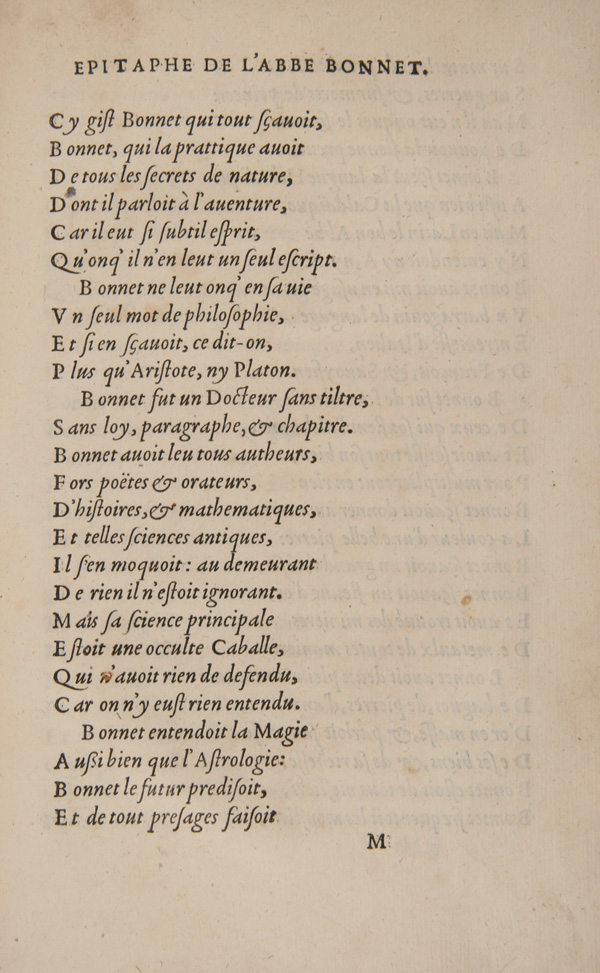 EPITAPHE DE L'ABBE BONNET.
Cy gist Bonnet qui tout sçauoit,
Bonnet, qui la prattique auoit
De tous les secrets de nature,
Dont il parloit à l'auenture,
Car il eut si subtil esprit,
Qu'onq' il n'en leut un seul escript.
Bonnet ne leut onq' en sa uie
Vn seul mot de philosophie,
Et si en sçauoit, ce dit-on,
Plus qu'Aristote, ny Platon.
Bonnet fut un Docteur sans tiltre,
Sans loy, paragraphe, & chapitre.
Bonnet auoit leu tous autheurs,
Fors poëtes & orateurs,
D'histoires, & mathematiques,
Et telles sciences antiques,
Il s'en moquoit: au demeurant
De rien il n'estoit ignorant.
Mais sa science principale
Estoit une occulte Caballe,
Qui n'auoit rien de defendu,
Car on n'y eust rien entendu.
Bonnet entendoit la Magie
Aussi bien que l'Astrologie:
Bonnet le futur predisoit,
Et de tout presages faisoit
M